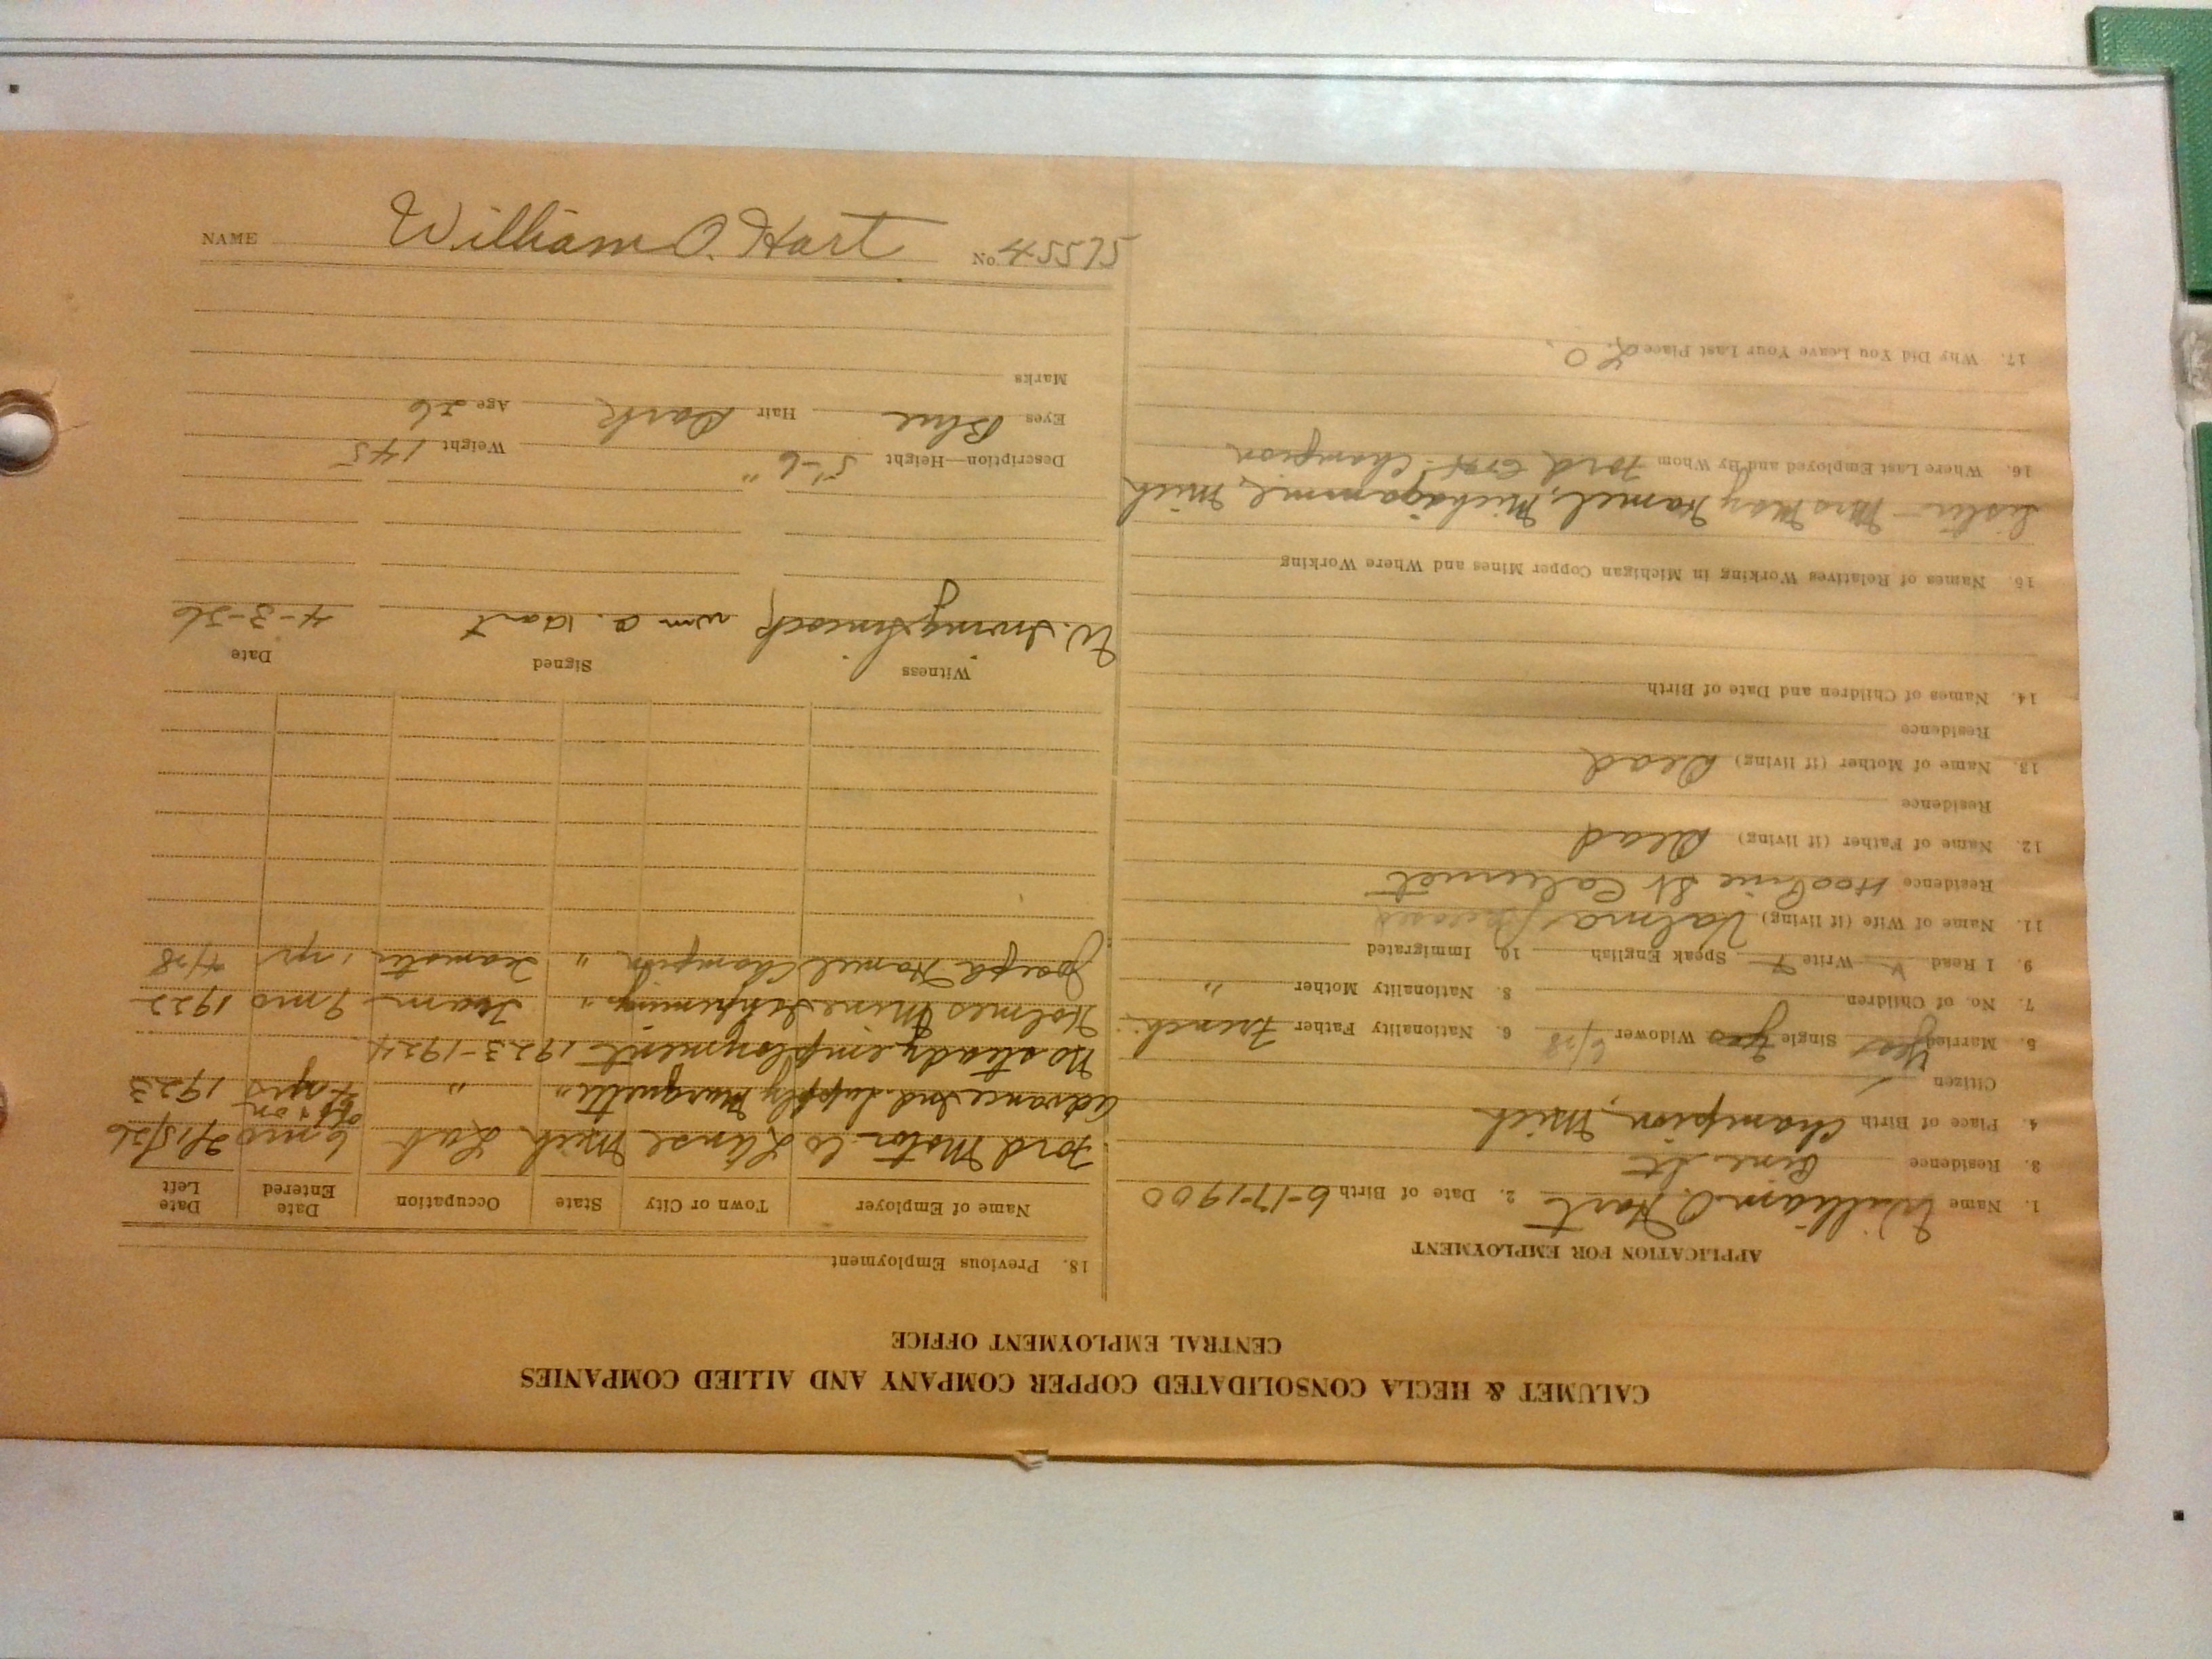 NAME William O. Hart No. 45575
CALUMET & HECLA CONSOLIDATED COPPER COMPANY AND ALLIED COMPANIES
CENTRAL EMPLOYMENT OFFICE
APPLICATION FOR EMPLOYMENT
1. Name William O. Hart 2. Date of Birth 6-17-1900
3. Residence Pine St
4. Place of Birth Champion, Mich
Citizen
5. Married Yes Single Yes Widower 6/28 6. Nationality Father French
7. No. of Children 8. Nationality Mother "
9. I Read Write Speak English 10. Immigrated
11. Name of Wife (if living) Valma
Residence Pine St Calumet
12. Name of Father (if living) Dead
Residence
13. Name of Mother (if living) Dead
Residence
14. Names of Children and Date of Birth
15. Names of Relatives Working in Michigan Copper Mines and Where Working
Sister - Mrs Mary Hamel, Michigamme, Mich
16. Where Last Employed and By Whom Ford Champion
17. Why Did You Leave Your Last Place L.O.
18. Previous Employment
Name of Employer Town or City State Occupation Date Entered Date Left
Ford Motor Co L'Anse Mich Lab 6 mo off & on 2/15/26
Advance and Supply Marquette " " 4 yrs 1923
No steady employment 1923-1924
Holmes Mine Ishpeming " Team 9 mo 1922
Joseph Hamel Champion " Teamster 1 yr 4/28
Witness Signed Date
W. Irving Simcock Wm O. Hart 4-3-26
Description—Height 5'-6" Weight 145
Eyes Blue Hair Dark Age 26
Marks